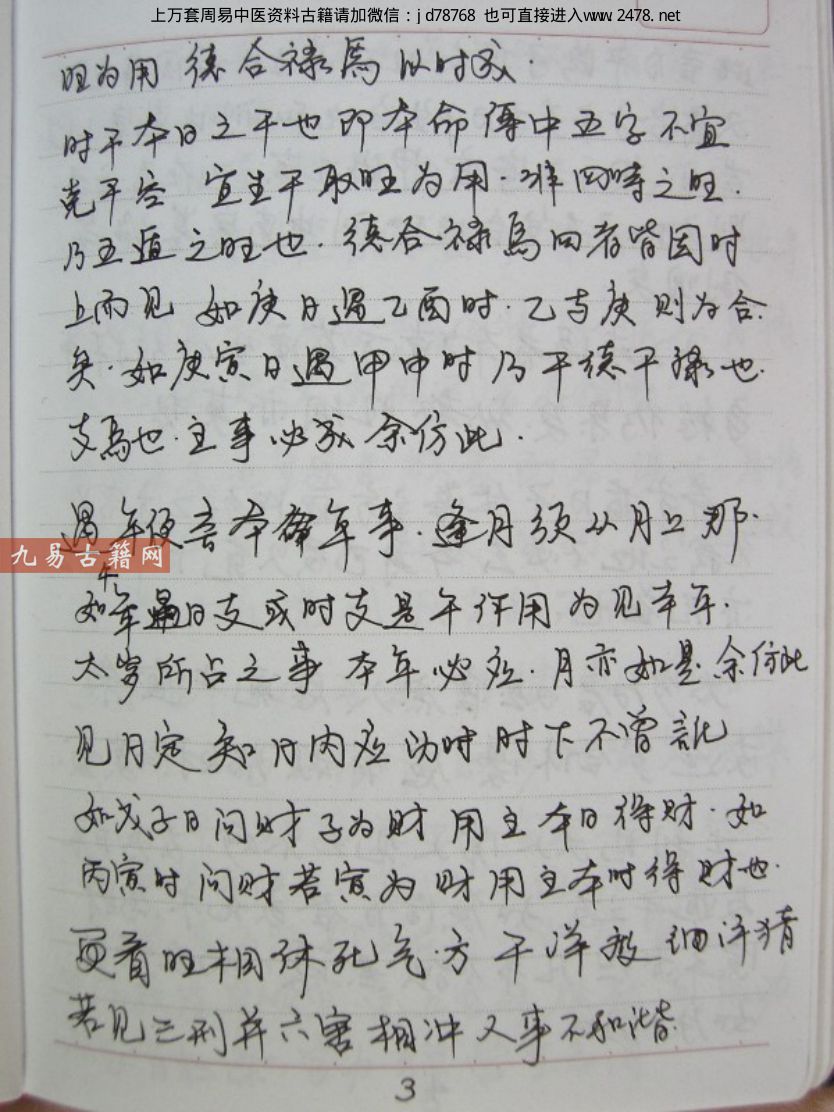 上万套周易中医资料古籍请加微信：jd78768 也可直接进入www.2478.net
旺为用 德合禄馬以时成.
时干本日之干也即本命傳中五字不宜
克干容 宜生干取旺为用.非四時之旺.
乃五遁之旺也.德合禄馬四者皆因时
上而见 如庚日遇乙酉时.乙与庚则为合.
矣.如庚寅日遇甲申时乃干德干禄也.
支馬也.主事必成 余仿此.
遇年便言本年事.逢月须从月上那.
九易古籍网
如午年日支或时支是午作用为见本年.
太岁所占之事 本年必应.月亦如是余仿此
见日定知日内应 时时下不曾訛
如戊子日问财子为财用主本日得财.如
丙寅时问财若寅为财用主本时得财也.
更看旺相休死气.方干洋 细详猜
若见三刑并六害相冲又事不和谐
3